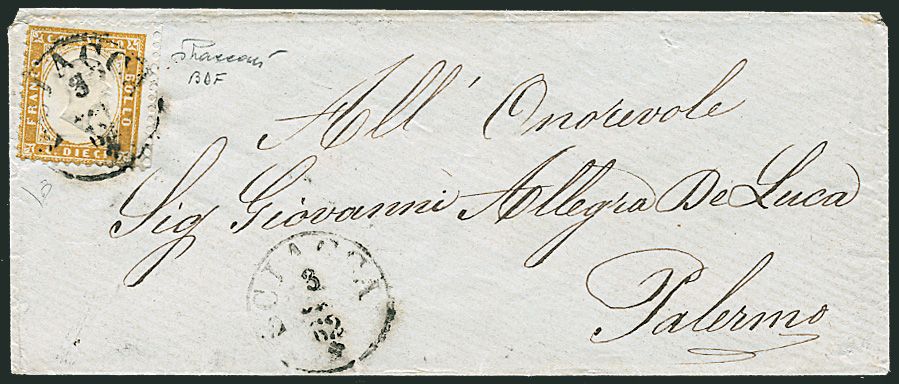 FRANCO
BOLLO
C. DIECI
SCIACCA
3
62
BDF
All' Onorevole
Sig Giovanni Allegra De Luca
Palermo
SCIACCA
3
62